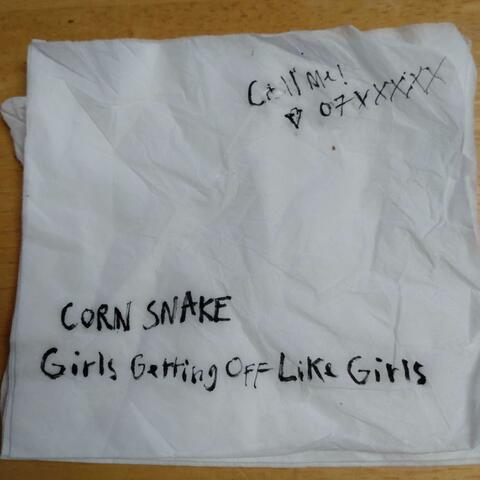 Call Me!
07XXXXXX
CORN SNAKE
Girls Getting Off Like Girls